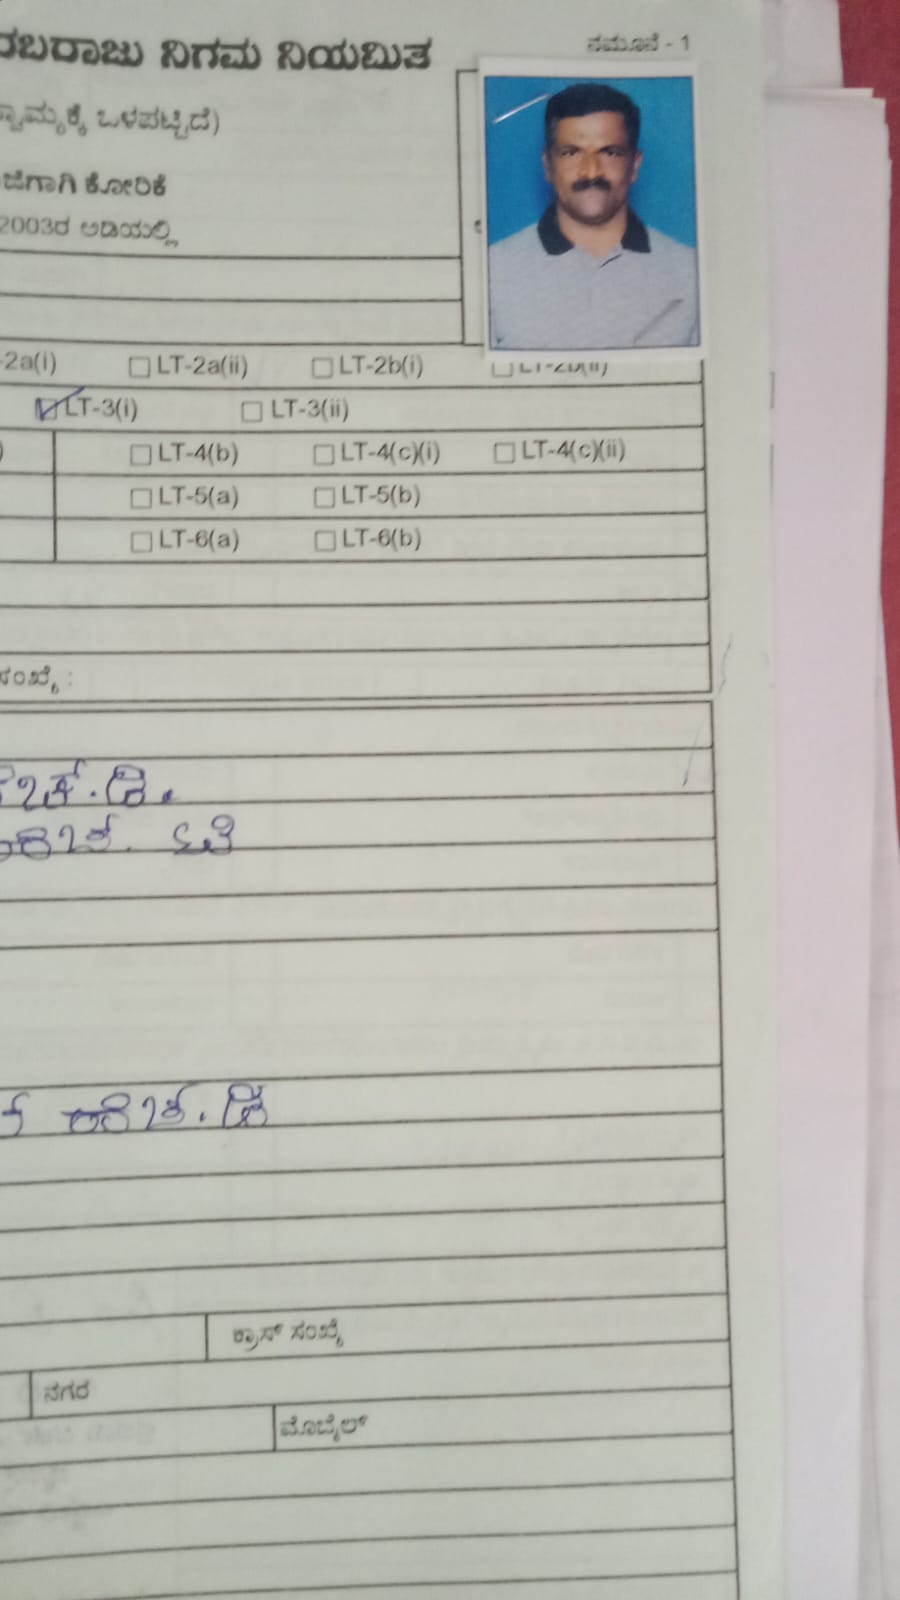 ನಮೂನೆ - 1
ರಬರಾಜು ನಿಗಮ ನಿಯಮಿತ
ಸ್ವಾಮ್ಯಕ್ಕೆ ಒಳಪಟ್ಟಿದೆ)
ಜಿಗಾಗಿ ಕೋರಿಕೆ
2003ರ ಅಡಿಯಲ್ಲಿ
-2a(i) LT-2a(ii) LT-2b(i) LT-2b(ii)
LT-3(i) LT-3(ii)
) LT-4(b) LT-4(c)(i) LT-4(c)(ii)
LT-5(a) LT-5(b)
LT-6(a) LT-6(b)
ಸಂಖ್ಯೆ :
ಕ್ರಾಸ್ ಸಂಖ್ಯೆ
ನಗರ
ಮೊಬೈಲ್